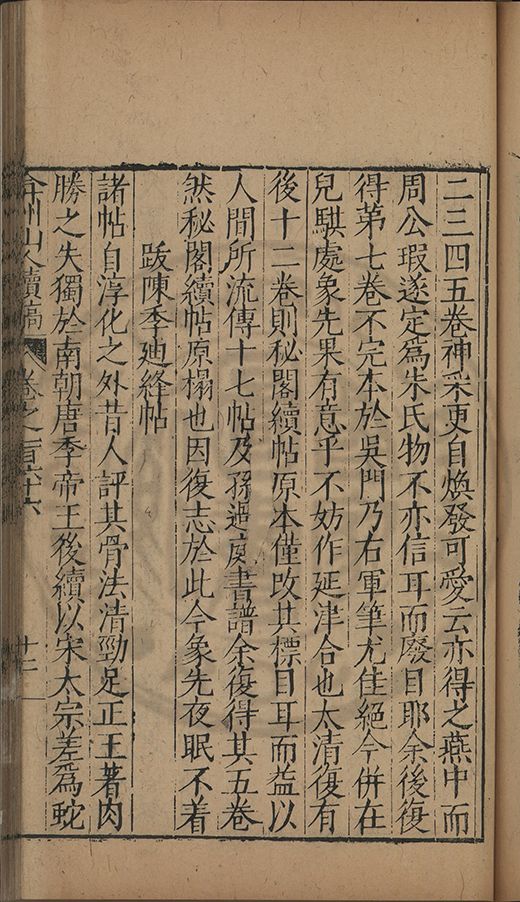 二三四五卷神采更自煥發可愛云亦得之燕中而
周公瑕遂定爲朱氏物不亦信耳而廢目耶余後復
得第七卷不完本於吳門乃右軍筆尤佳絕今併在
兒騏處象先果有意乎不妨作延津合也太清復有
後十二卷則秘閣續帖原本僅改其標目耳而益以
人間所流傳十七帖及孫過庭書譜余復得其五卷
然秘閣續帖原搨也因復志於此今象先夜眠不着
跋陳季廸絳帖
諸帖自淳化之外昔人評其骨法清勁足正王著肉
勝之失獨於南朝唐季帝王後續以宋太宗差爲蛇
弇州山人續稿 卷之一百六十六 十二